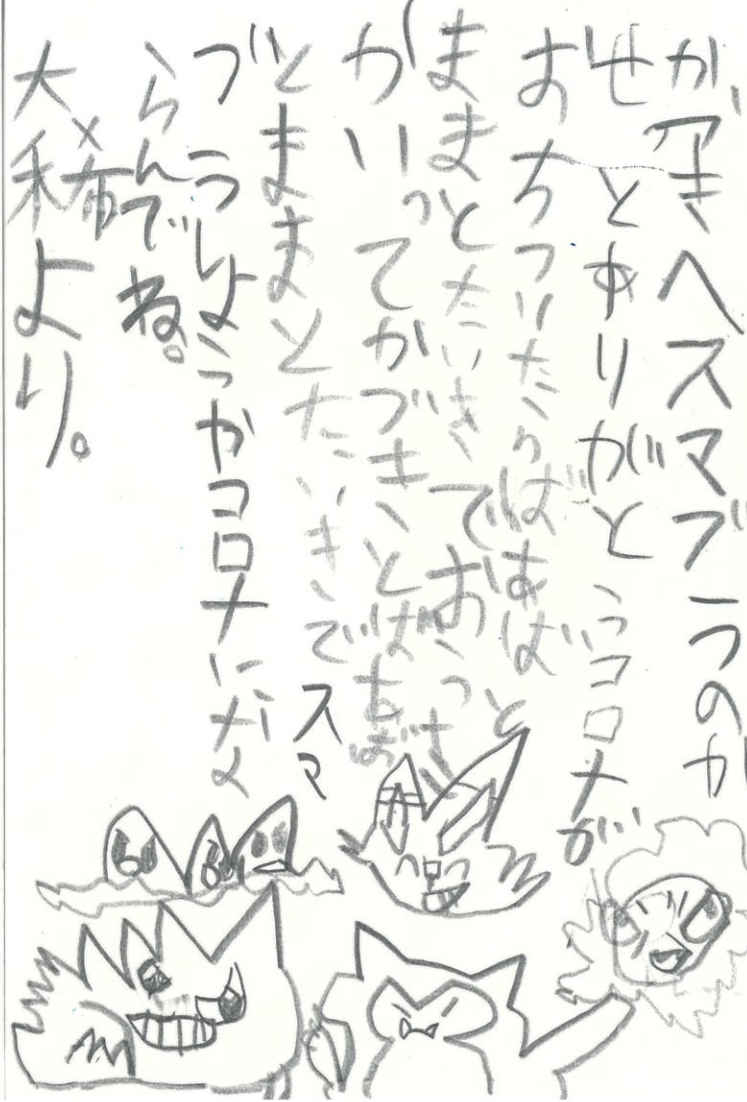 か月きへスマブラのか
せとありがとうコロナが
おちついたらばあば
ままとたいきでおっと
かいってかづき、とばあば
とままとたいきでスマ
ブラしようがコロナにな
らんでね。
大稀より。